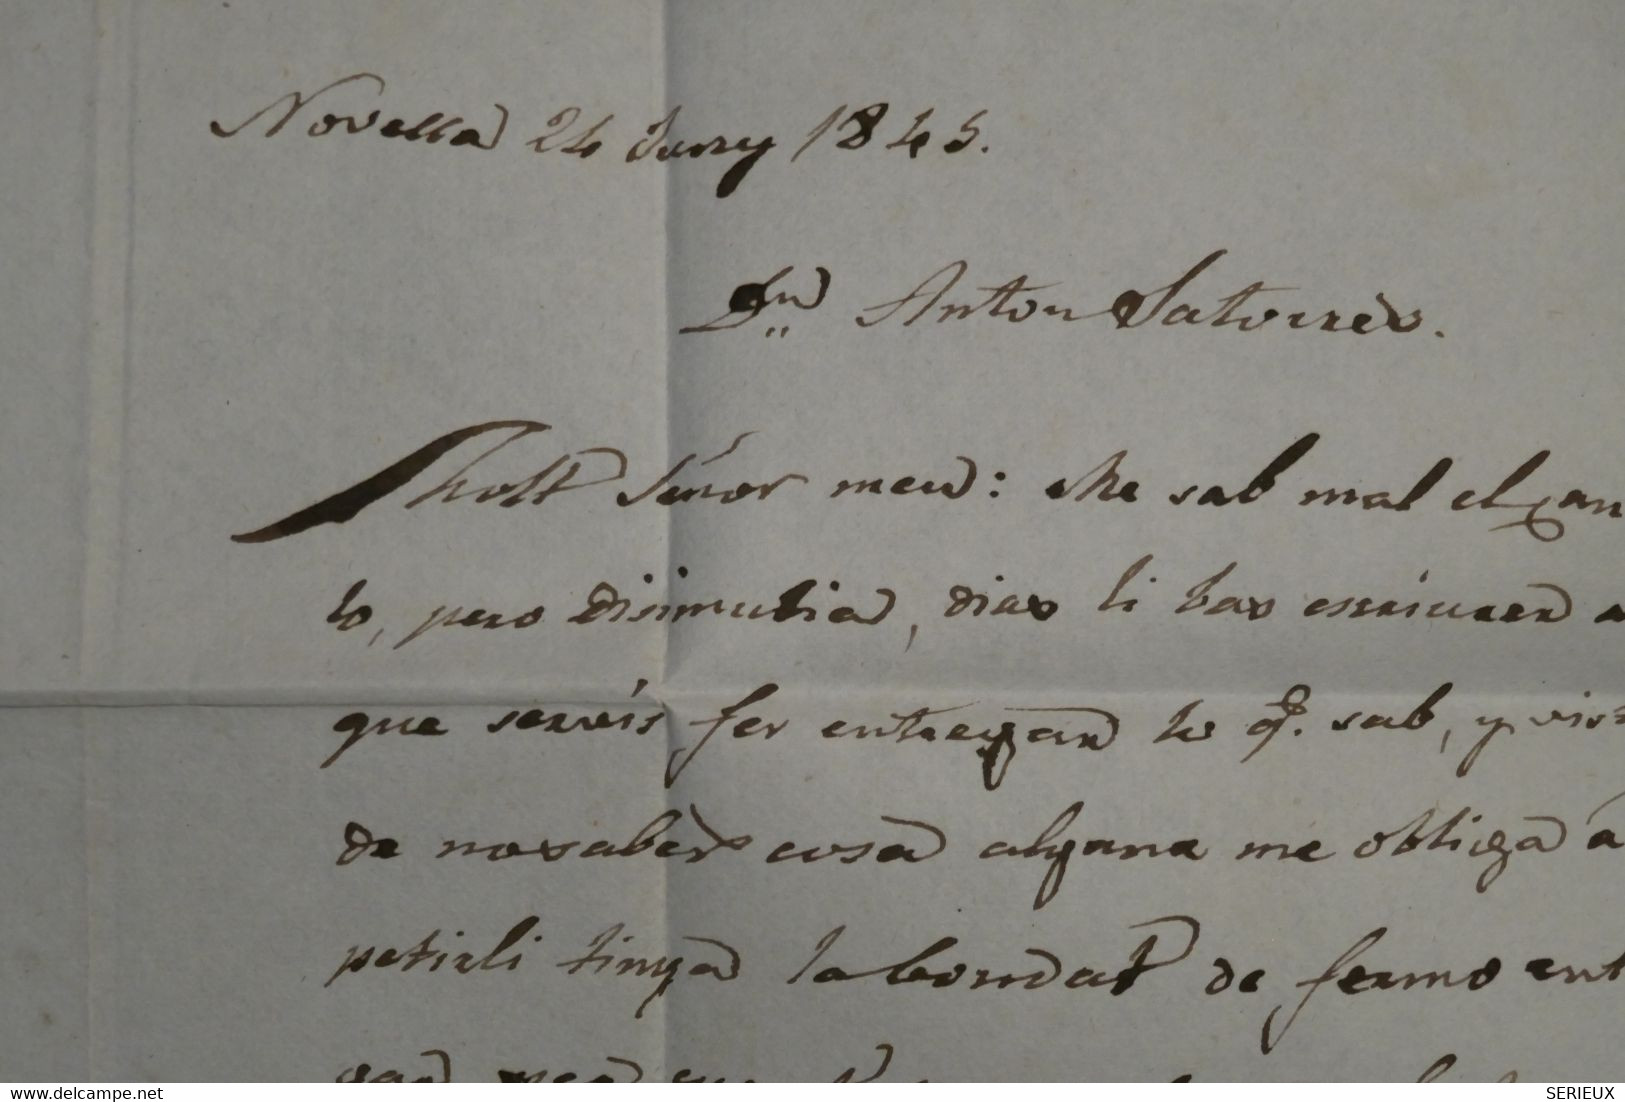 Novella 24 Juny 1845.
Dn Anton Satorres.
Molt Señor meu: Me sab mal el can
to, pero disimulia, dias li bas escriurer a
que servis fer entregar lo q.e sab, y vist
de no saber cosa alguna me obliga á
petirli tinga la bondat de fermo ent
gar
www.delcampe.net
SERIEUX